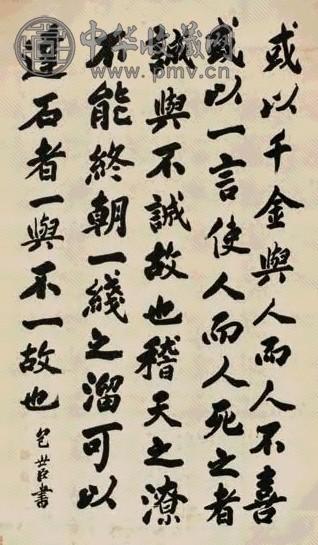 中华收藏网
www.pmv.cn
或以千金與人而人不喜
或以一言使人而人死之者
誠與不誠故也稽天之潦
不能終朝一綫之溜可以
達石者一與不一故也
包世臣書